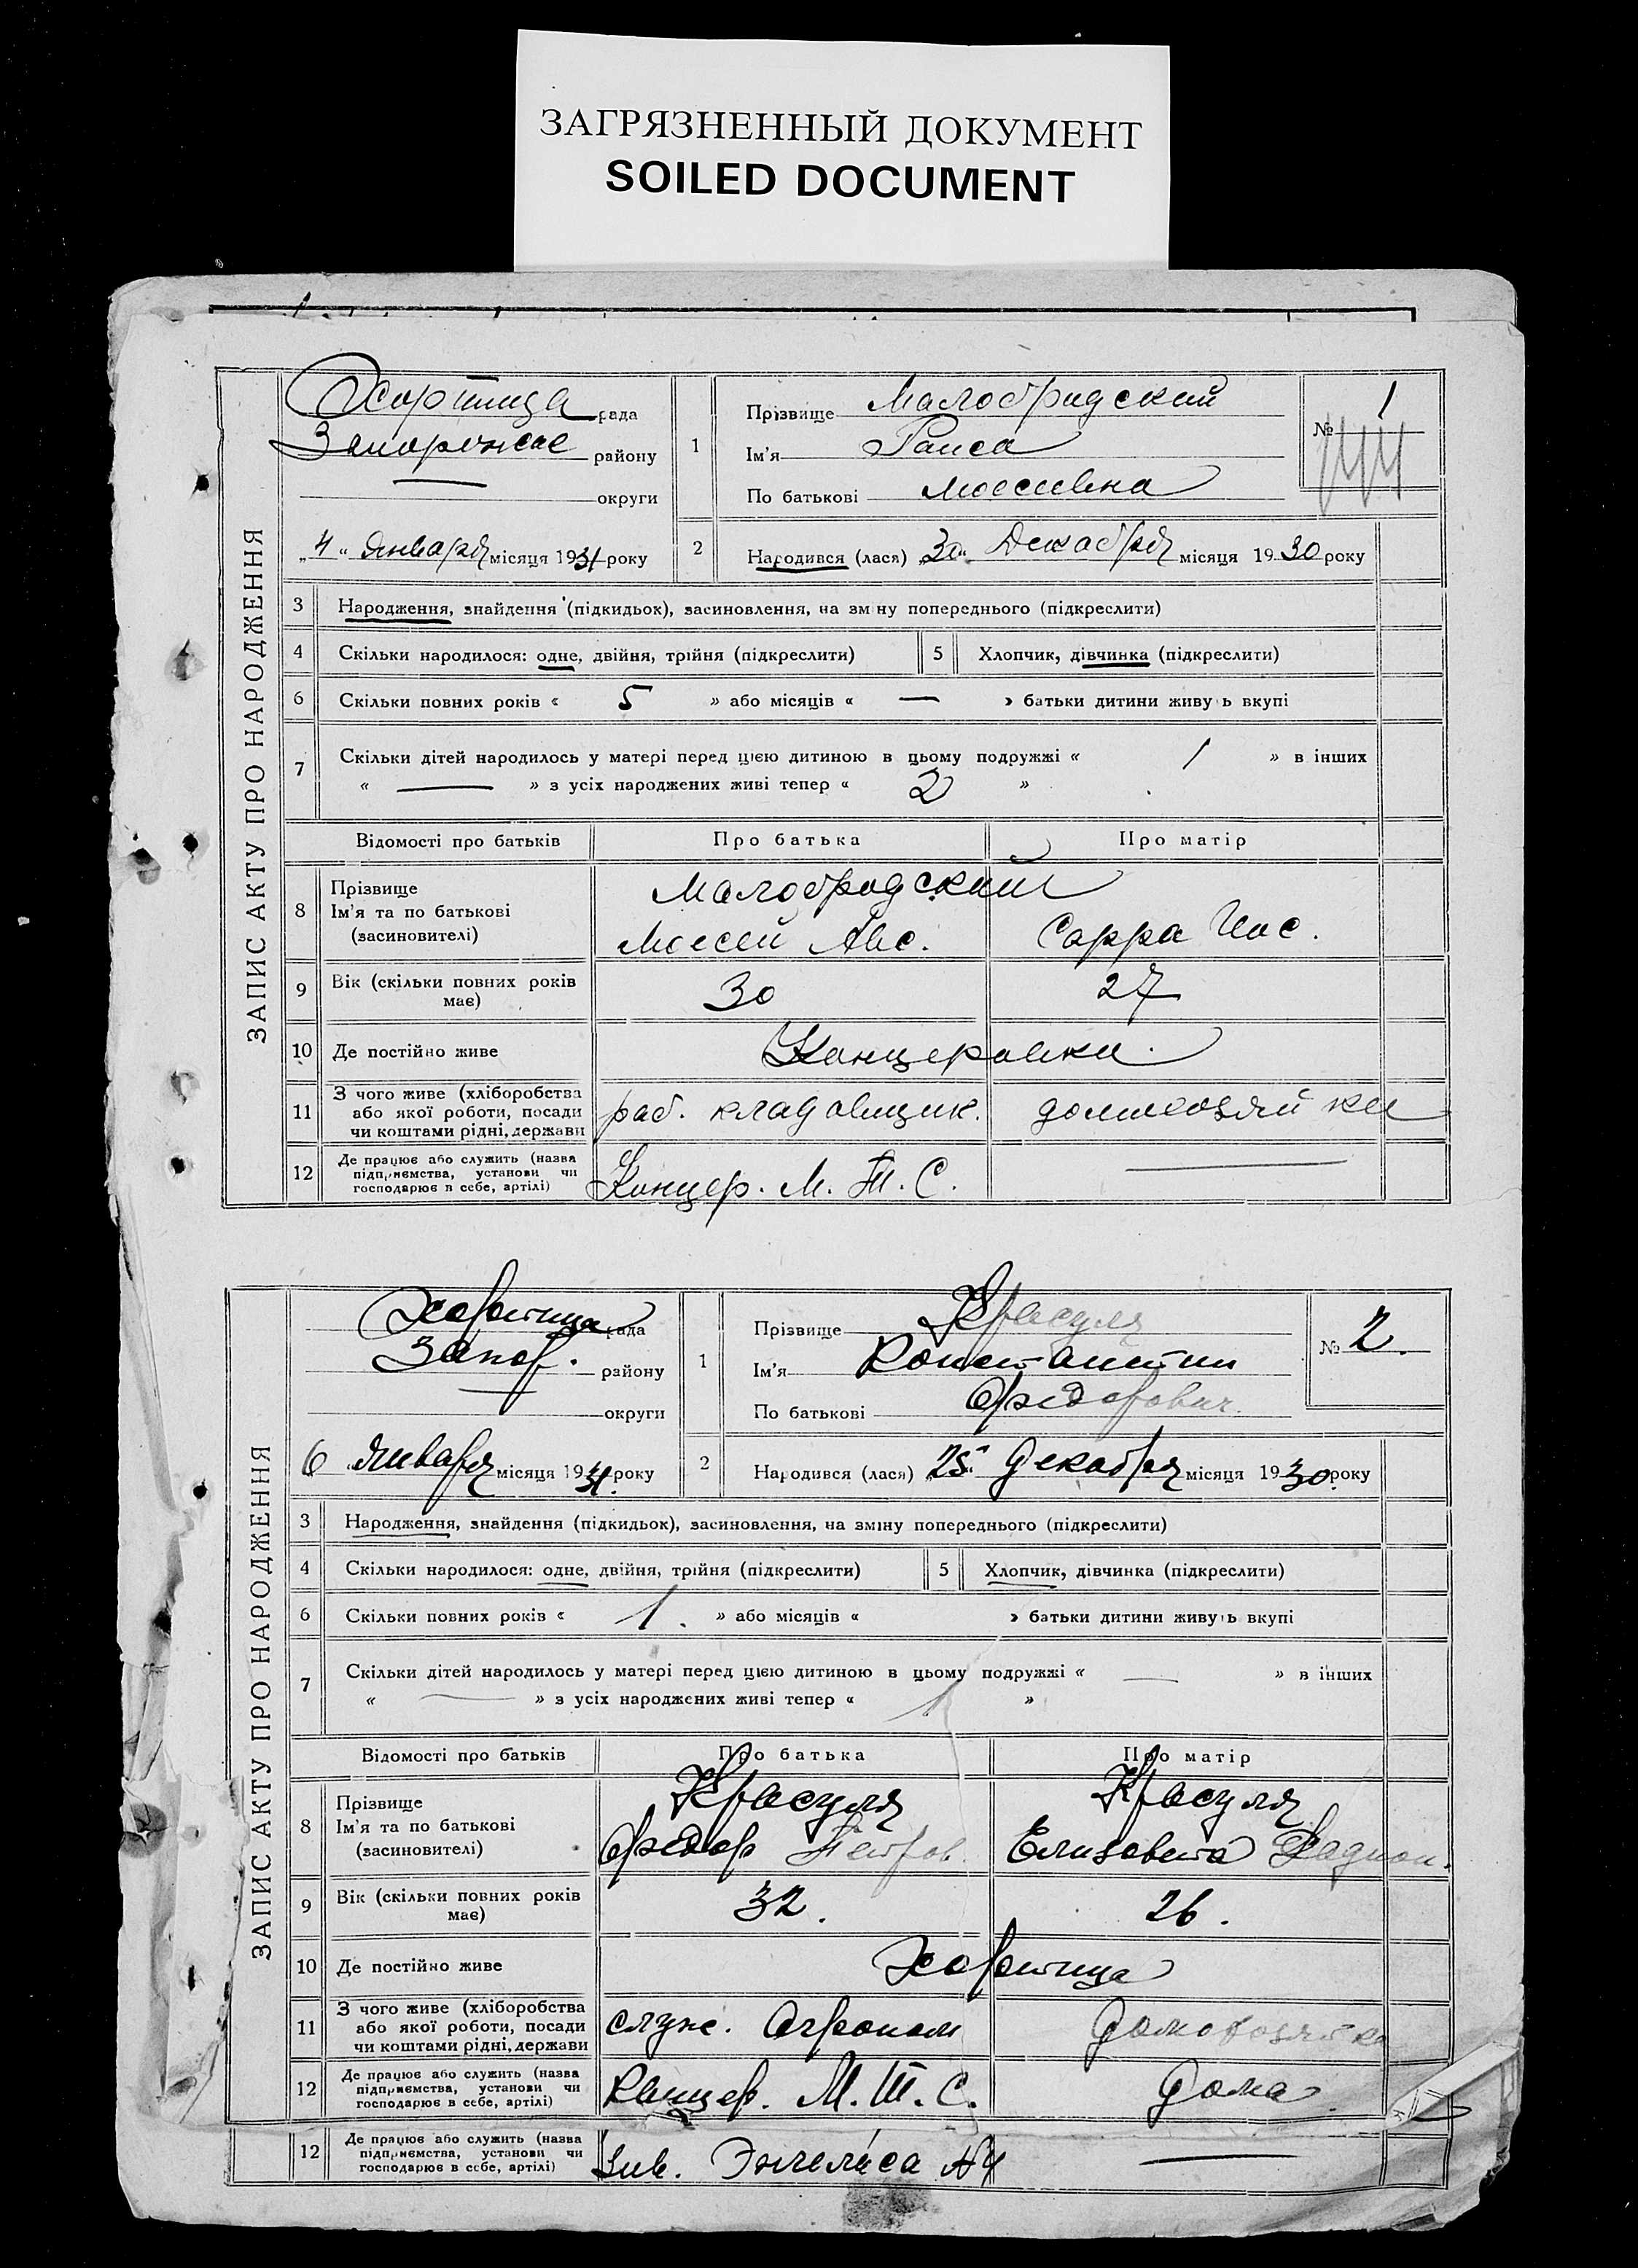 ЗАГРЯЗНЕННЫЙ ДОКУМЕНТ
SOILED DOCUMENT
ЗАПИС АКТУ ПРО НАРОДЖЕННЯ
Хортица рада
Запорожье району
— округи
„4“ Января місяця 1931 року
1
Прізвище Малобродский
Ім'я Раиса
По батькові Моесивна
№ 1
2
Народився (лася) „30“ Декабря місяця 1930 року
3 Народження, знайдення (підкидьок), засиновлення, на зміну попереднього (підкреслити)
4 Скільки народилося: одне, двійня, трійня (підкреслити)
5 Хлопчик, дівчинка (підкреслити)
6 Скільки повних років « 5 » або місяців « — » батьки дитини живуть вкупі
7 Скільки дітей народилось у матері перед цією дитиною в цьому подружжі « 1 » в інших
« — » з усіх народжених живі тепер « 2 »
Відомості про батьків Про батька Про матір
8 Прізвище
Ім'я та по батькові
(засиновителі)
Малобродский
Моесей Авс. Сарра Иос.
9 Вік (скільки повних років
має)
30 27
10 Де постійно живе Канцеровка.
11 З чого живе (хліборобства
або якої роботи, посади
чи коштами рідні, держави
раб. кладовщик. домохозяйка
12 Де працює або служить (назва
підприємства, установи чи
господарює в себе, артілі)
Канцер. М. Т. С. —
ЗАПИС АКТУ ПРО НАРОДЖЕННЯ
Хортица рада
Запор. району
— округи
6 Января місяця 1931. року
1
Прізвище Красуля
Ім'я Константин
По батькові Федорович.
№ 2.
2
Народився (лася) „25“ Декабря місяця 1930. року
3 Народження, знайдення (підкидьок), засиновлення, на зміну попереднього (підкреслити)
4 Скільки народилося: одне, двійня, трійня (підкреслити)
5 Хлопчик, дівчинка (підкреслити)
6 Скільки повних років « 1. » або місяців « » батьки дитини живуть вкупі
7 Скільки дітей народилось у матері перед цією дитиною в цьому подружжі « — » в інших
« — » з усіх народжених живі тепер « 1 »
Відомості про батьків Про батька Про матір
8 Прізвище
Ім'я та по батькові
(засиновителі)
Красуля Красуля
Федор Петров. Елизавета Радион.
9 Вік (скільки повних років
має)
32. 26.
10 Де постійно живе Хортица
11 З чого живе (хліборобства
або якої роботи, посади
чи коштами рідні, держави
служ. Агроном Домохозяйка
12 Де працює або служить (назва
підприємства, установи чи
господарює в себе, артілі)
Канцер. М. Т. С. Дома
12 Де працює або служить (назва
підприємства, установи чи
господарює в себе, артілі)
Зав. Энгельса №4 —